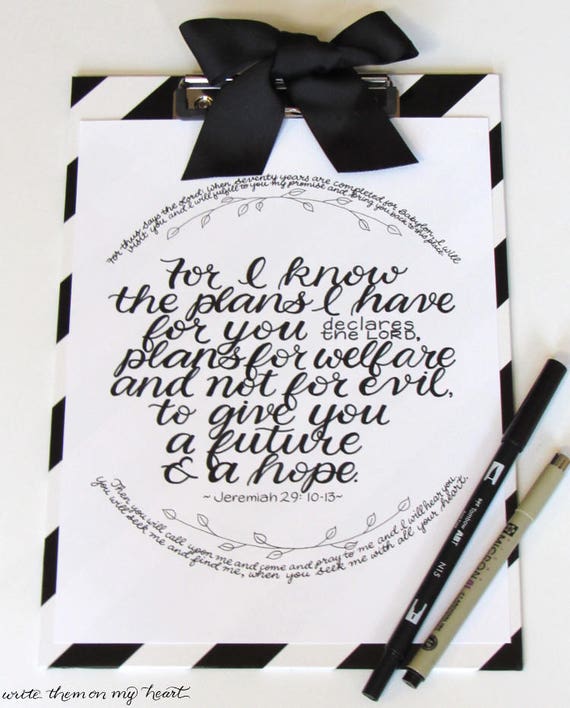 For thus says the Lord: when seventy years are completed for Babylon, I will
visit you and I will fulfill to you my promise and bring you back to this place.
For I know
the plans I have
for you declares
the LORD,
plans for welfare
and not for evil,
to give you
a future
& a hope.
~ Jeremiah 29: 10-13~
Then you will call upon me and come and pray to me and I will hear you.
you will seek me and find me, when you seek me with all your heart.
Tombow ABT
N15
MICRON
write them on my heart